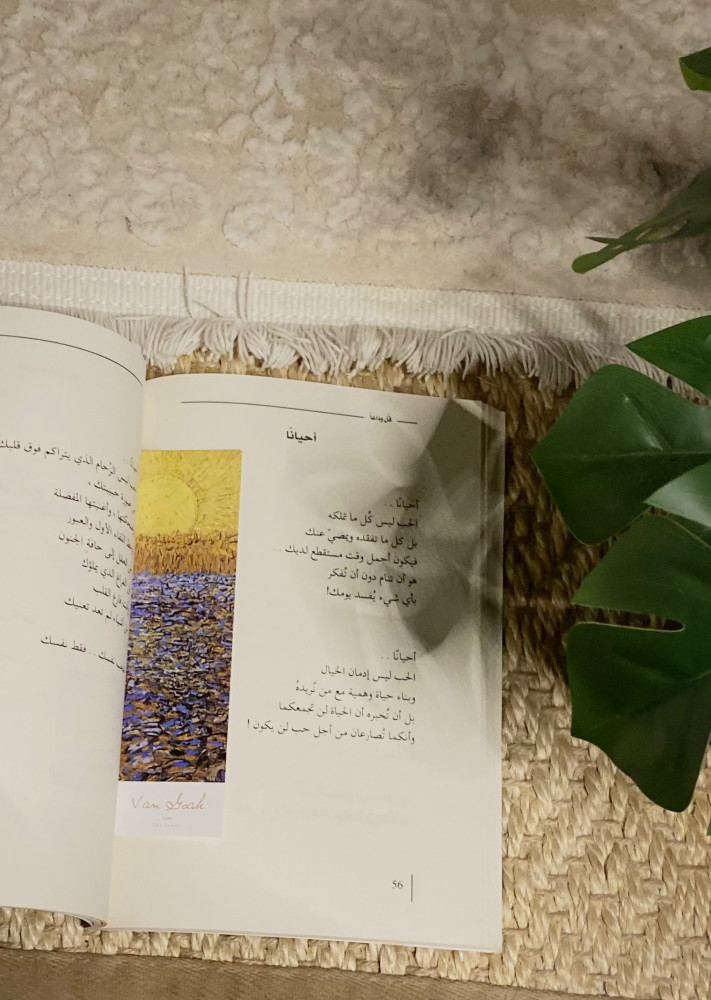 قُل وداعاً
أحيانًا
أحيانًا . .
الحب ليس كُل ما تملكه
بل كل ما تفقده ويمضيّ عنك
فيكون أجمل وقت مستقطع لديك . .
هو أن تنام دون أن تُفكر
بأي شيء يُفسد يومك!
أحيانًا . .
الحب ليس إدمان الخيال
وبناء حياة وهمية مع من تُريدهُ
بل أن تُخبره أن الحياة لن تجمعكما
وأنكما تُصارعان من أجل حب لن يكون !
56
Van Goah
الرُخام الذي يتراكم فوق قلبك
حبيبتك ،
وأغنيتها المفضلة
اللقاء الأول والعبور
إلى حافة الجنون
الذي يملؤك
فارغ القلب
لم تعد تعنيك
. . فقط نفسك